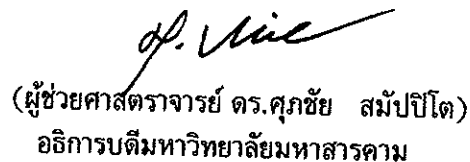 (ผู้ช่วยศาสตราจารย์ ดร.ศุภชัย สมัปปิโต)
อธิการบดีมหาวิทยาลัยมหาสารคาม